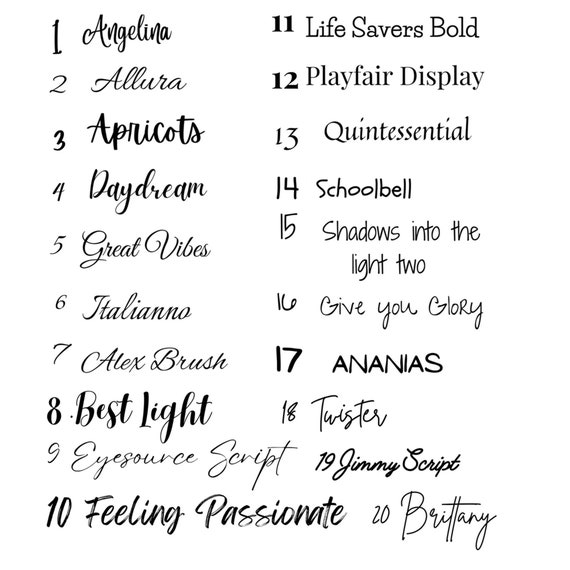 1 Angelina
2 Allura
3 Apricots
4 Daydream
5 Great Vibes
6 Italianno
7 Alex Brush
8 Best Light
9 Eyesource Script
10 Feeling Passionate
11 Life Savers Bold
12 Playfair Display
13 Quintessential
14 Schoolbell
15 Shadows into the
light two
16 Give you Glory
17 ANANIAS
18 Twister
19 Jimmy Script
20 Brittany